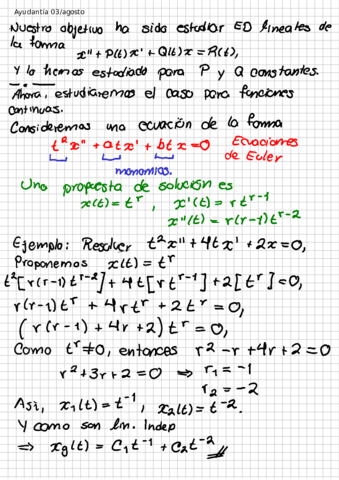 Ayudantía 03/agosto
Nuestro objetivo ha sido estudiar ED lineales de
la forma
x'' + P(t)x' + Q(t)x = R(t),
y lo hemos estudiado para P y Q constantes.
Ahora, estudiaremos el caso para funciones
continuas.
Consideremos una ecuación de la forma
t²x'' + atx' + btx = 0 Ecuaciones
de Euler
monomios.
Una propuesta de solución es
x(t) = t^r, x'(t) = r t^{r-1}
x''(t) = r(r-1)t^{r-2}
Ejemplo: Resolver t²x'' + 4tx' + 2x = 0,
Proponemos x(t) = t^r
t²[r(r-1)t^{r-2}] + 4t[r t^{r-1}] + 2[t^r] = 0,
r(r-1)t^r + 4r t^r + 2t^r = 0,
(r(r-1) + 4r + 2)t^r = 0,
Como t^r ≠ 0, entonces r² - r + 4r + 2 = 0
r² + 3r + 2 = 0 ⇒ r₁ = -1
r₂ = -2
Asi, x₁(t) = t^{-1}, x₂(t) = t^{-2}.
Y como son lin. Indep
⇒ xg(t) = C₁t^{-1} + C₂t^{-2}